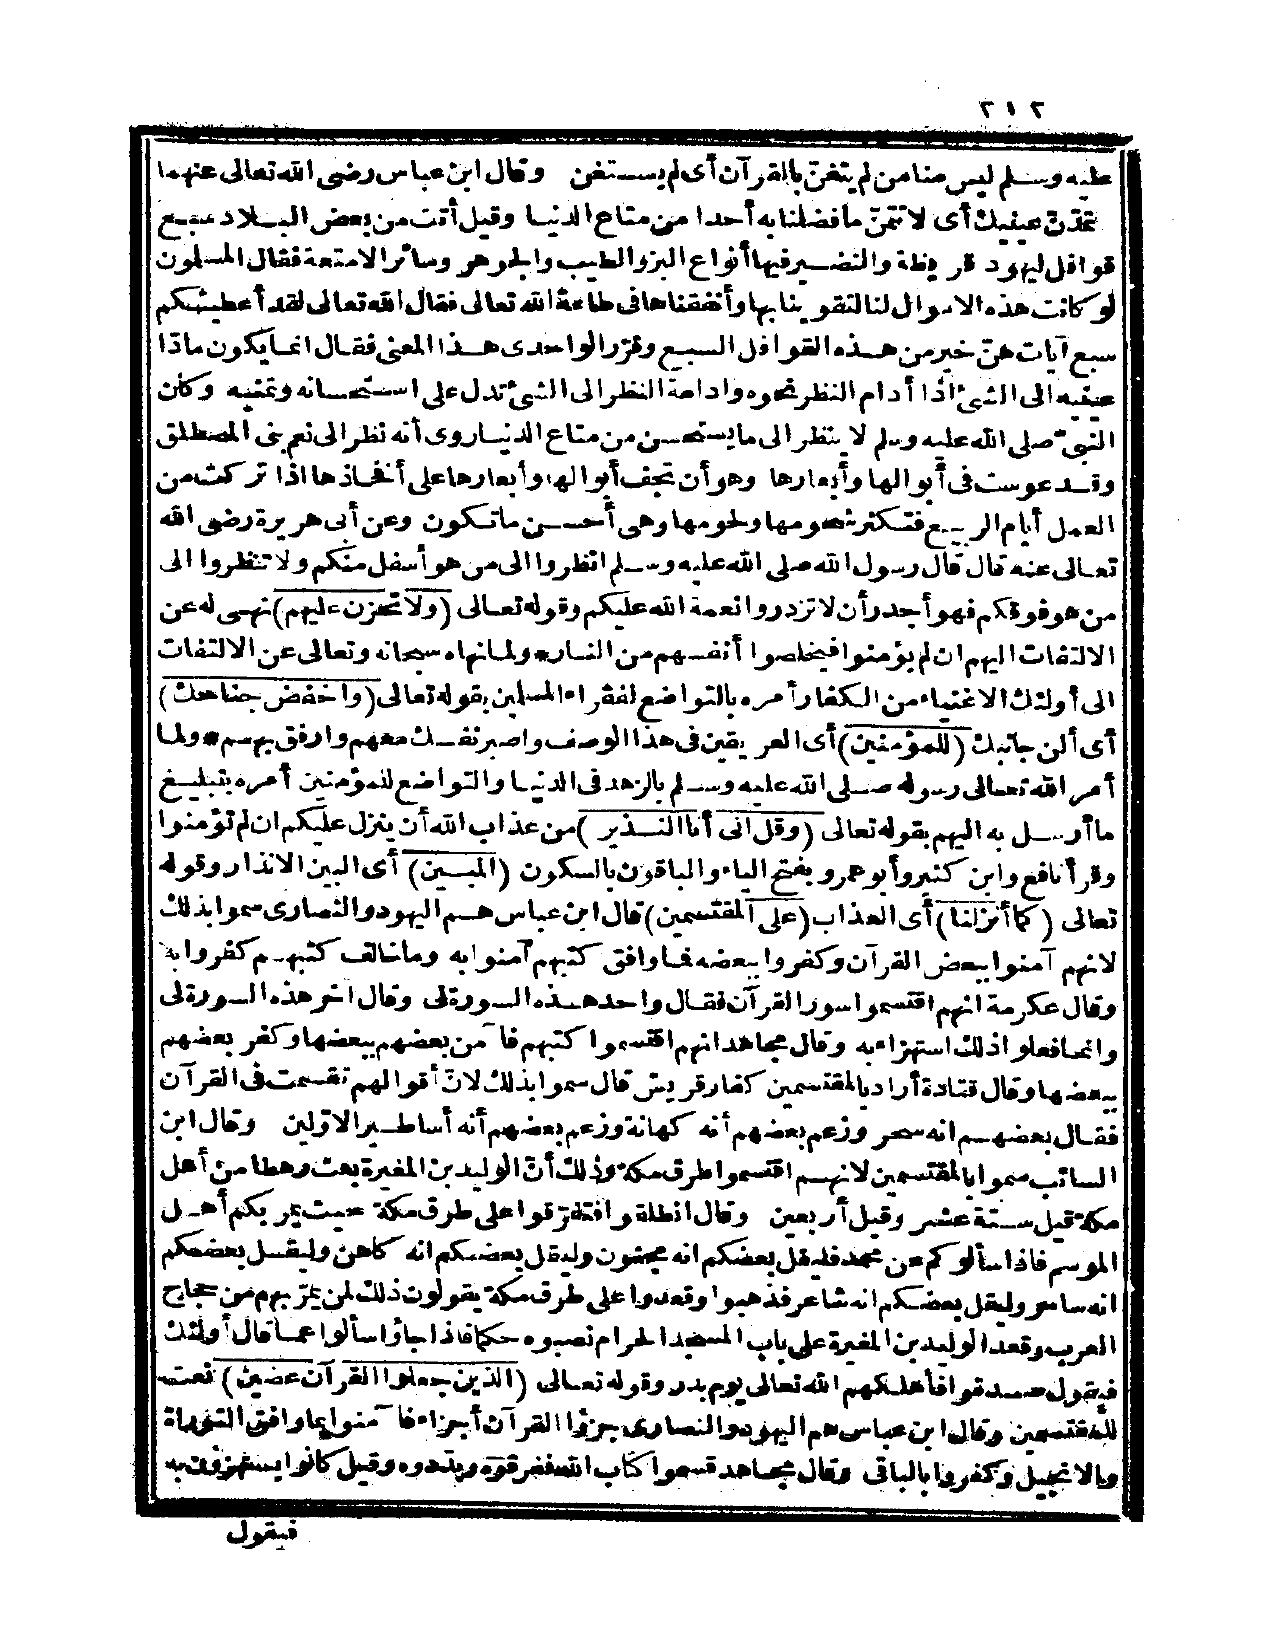 ٢١٢
عليه وسلم ليس منا من لم يتغنّ بالقرآن أى لم يستغن وقال ابن عباس رضى الله تعالى عنهما
تمدّنّ عينيك أى لا تتمنّ ما فضلنا به أحدا من متاع الدنيا وقيل أتت من بعض البلاد سبع
قوافل ليهود قريظة والنضير فيها أنواع البز والطيب والجوهر وسائر الامتعة فقال المسلمون
لو كانت هذه الاموال لنا لتقوينا بها وأنفقناها فى طاعة الله تعالى فقال الله تعالى لقد أعطيتكم
سبع آيات هنّ خير من هذه القوافل السبع وقرّر الواحدى هذا المعنى فقال انما يكون مادّا
عينيه الى الشئ اذا أدام النظر نحوه وادامة النظر الى الشئ تدل على استحسانه وتمنيه وكان
النبىّ صلى الله عليه وسلم لا ينظر الى ما يستحسن من متاع الدنيا روى أنه نظر الى نعم بنى المصطلق
وقد عوست فى أبوالها وأبعارها وهو أن تجف أبوالها وأبعارها على أفخاذها اذا تركت من
العمل أيام الربيع فتكثر شحومها ولحومها وهى أحسن ما تكون وعن أبى هريرة رضى الله
تعالى عنه قال قال رسول الله صلى الله عليه وسلم انظروا الى من هو أسفل منكم ولا تنظروا الى
من هو فوقكم فهو أجدر أن لا تزدروا نعمة الله عليكم وقوله تعالى (ولا تحزن عليهم) نهى له عن
الالتفات اليهم ان لم يؤمنوا فيخلصوا أنفسهم من النار* ولما نهاه سبحانه وتعالى عن الالتفات
الى أولئك الاغنياء من الكفار أمره بالتواضع لفقراء المسلمين بقوله تعالى (واخفض جناحك)
أى ألن جانبك (للمؤمنين) أى العريقين فى هذا الوصف واصبر نفسك معهم وارفق بهم* ولما
أمر الله تعالى رسوله صلى الله عليه وسلم بالزهد فى الدنيا والتواضع للمؤمنين أمره بتبليغ
ما أرسل به اليهم بقوله تعالى (وقل انى أنا النذير) من عذاب الله أن ينزل عليكم ان لم تؤمنوا
وقرأ نافع وابن كثير وأبو عمرو بفتح الياء والباقون بالسكون (المبين) أى البين الانذار وقوله
تعالى (كما أنزلنا) أى العذاب (على المقتسمين) قال ابن عباس هم اليهود والنصارى سموا بذلك
لانهم آمنوا ببعض القرآن وكفروا ببعضه فما وافق كتبهم آمنوا به وما خالف كتبهم كفروا به
وقال عكرمة انهم اقتسموا سور القرآن فقال واحد هذه السورة لى وقال آخر هذه السورة لى
وانما فعلوا ذلك استهزاء به وقال مجاهد انهم اقتسموا كتبهم فآمن بعضهم ببعضها وكفر بعضهم
ببعضها وقال قتادة أراد بالمقتسمين كفار قريش قال سموا بذلك لانّ أقوالهم تقسمت فى القرآن
فقال بعضهم انه سحر وزعم بعضهم أنه كهانة وزعم بعضهم أنه أساطير الاوّلين وقال ابن
السائب سموا بالمقتسمين لانهم اقتسموا طرق مكة وذلك أنّ الوليد بن المغيرة بعث رهطا من أهل
مكة قيل ستة عشر وقيل أربعين وقال انطلقوا فتفرّقوا على طرق مكة حيث يمر بكم أهل
الموسم فاذا سألوكم عن محمد فليقل بعضكم انه مجنون وليقل بعضكم انه كاهن وليقل بعضكم
انه ساحر وليقل بعضكم انه شاعر فذهبوا وقعدوا على طرق مكة يقولون ذلك لمن يمرّ بهم من حجاج
العرب وقعد الوليد بن المغيرة على باب المسجد الحرام نصبوه حكما فاذا جاؤا سألوا عما قال أولئك
فيقول صدقوا فأهلكهم الله تعالى يوم بدر وقوله تعالى (الذين جعلوا القرآن عضين) نعت
للمقتسمين وقال ابن عباس هم اليهود والنصارى جزؤا القرآن أجزاء فآمنوا بما وافق التوراة
والانجيل وكفروا بالباقى وقال مجاهد قسموا كتاب الله ففرّقوه وبدّدوه وقيل كانوا يستهزؤن به
فيقول